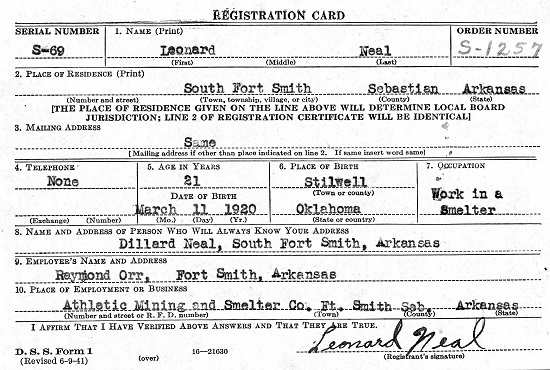 REGISTRATION CARD
SERIAL NUMBER 1. NAME (Print) ORDER NUMBER
S-69 Leonard Neal S-1257
(First) (Middle) (Last)
2. PLACE OF RESIDENCE (Print)
South Fort Smith Sebastian Arkansas
(Number and street) (Town, township, village, or city) (County) (State)
[THE PLACE OF RESIDENCE GIVEN ON THE LINE ABOVE WILL DETERMINE LOCAL BOARD
JURISDICTION; LINE 2 OF REGISTRATION CERTIFICATE WILL BE IDENTICAL]
3. MAILING ADDRESS
Same
[Mailing address if other than place indicated on line 2. If same insert word same]
4. TELEPHONE 5. AGE IN YEARS 6. PLACE OF BIRTH 7. OCCUPATION
None 21 Stilwell
(Town or county)
DATE OF BIRTH Work in a
March 11 1920 Oklahoma Smelter
(Exchange) (Number) (Mo.) (Day) (Yr.) (State or country)
8. NAME AND ADDRESS OF PERSON WHO WILL ALWAYS KNOW YOUR ADDRESS
Dillard Neal, South Fort Smith, Arkansas
9. EMPLOYER'S NAME AND ADDRESS
Raymond Orr, Fort Smith, Arkansas
10. PLACE OF EMPLOYMENT OR BUSINESS
Athletic Mining and Smelter Co. Ft. Smith Seb, Arkansas
(Number and street or R. F. D. number) (Town) (County) (State)
I AFFIRM THAT I HAVE VERIFIED ABOVE ANSWERS AND THAT THEY ARE TRUE.
Leonard Neal
D. S. S. Form 1 16—21630 (Registrant's signature)
(Revised 6-9-41) (over)